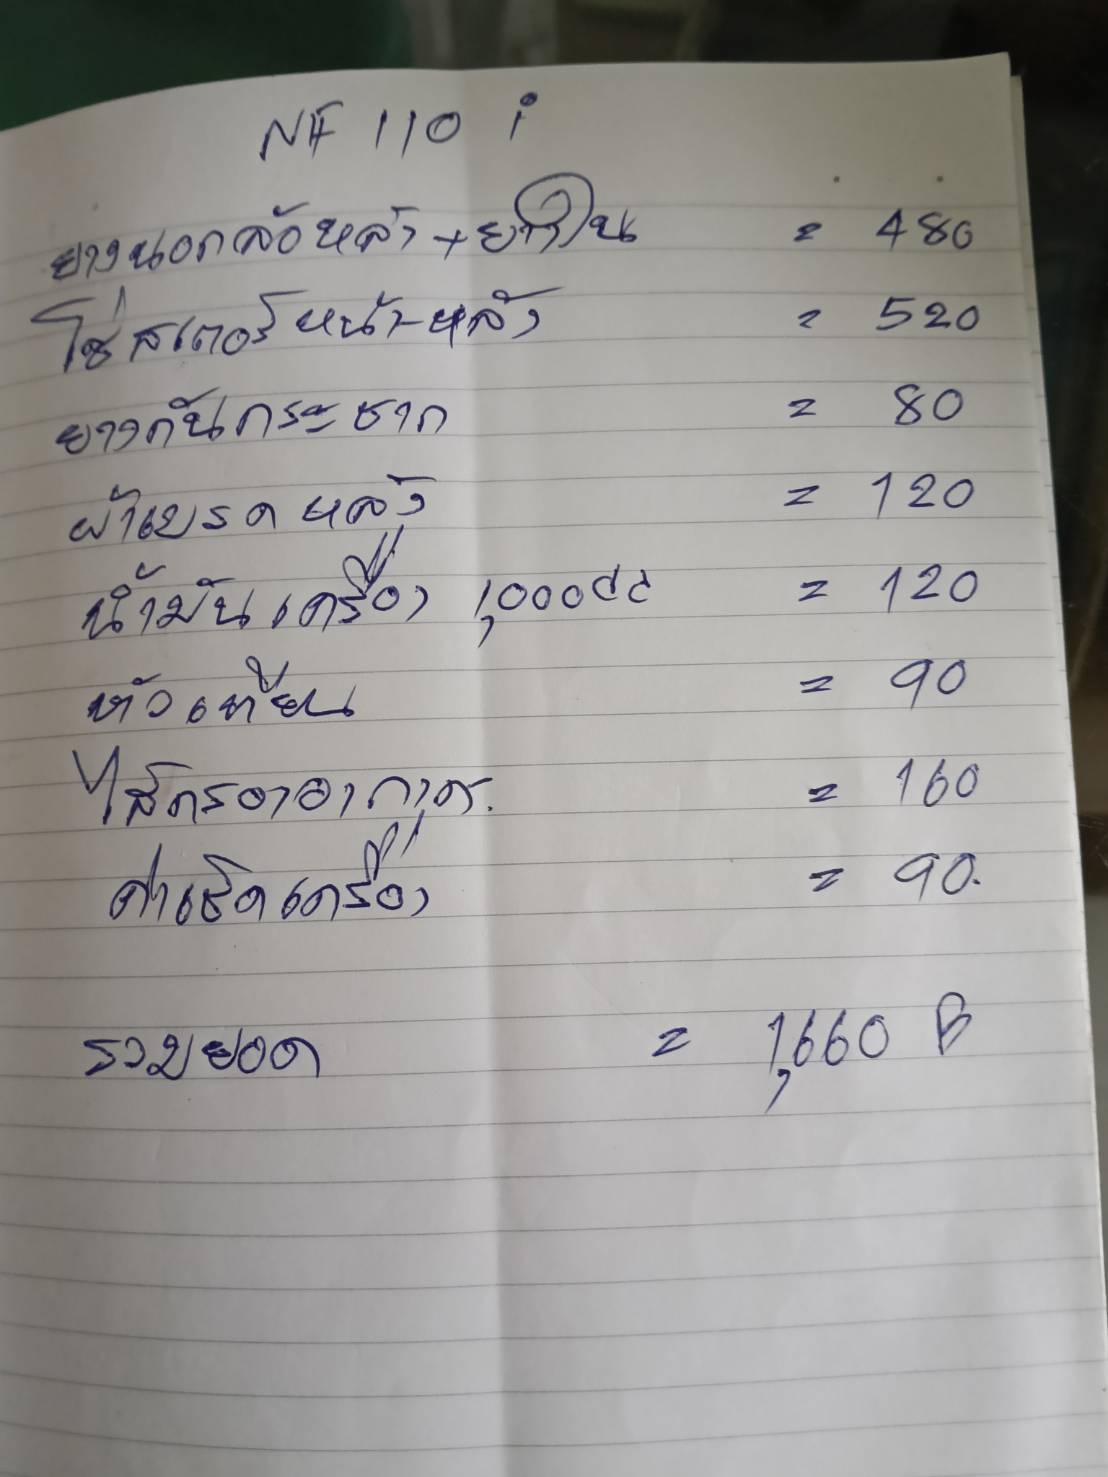 NF 110 i
ยางนอกล้อหลัง + ยางใน = 480
โซ่สเตอร์หน้า-หลัง = 520
ยางกันกระชาก = 80
ผ้าเบรคหลัง = 120
น้ำมันเครื่อง 1,000cc = 120
หัวเทียน = 90
ไส้กรองอากาศ. = 160
ค่าเช็คเครื่อง = 90.
รวมยอด = 1,660 B